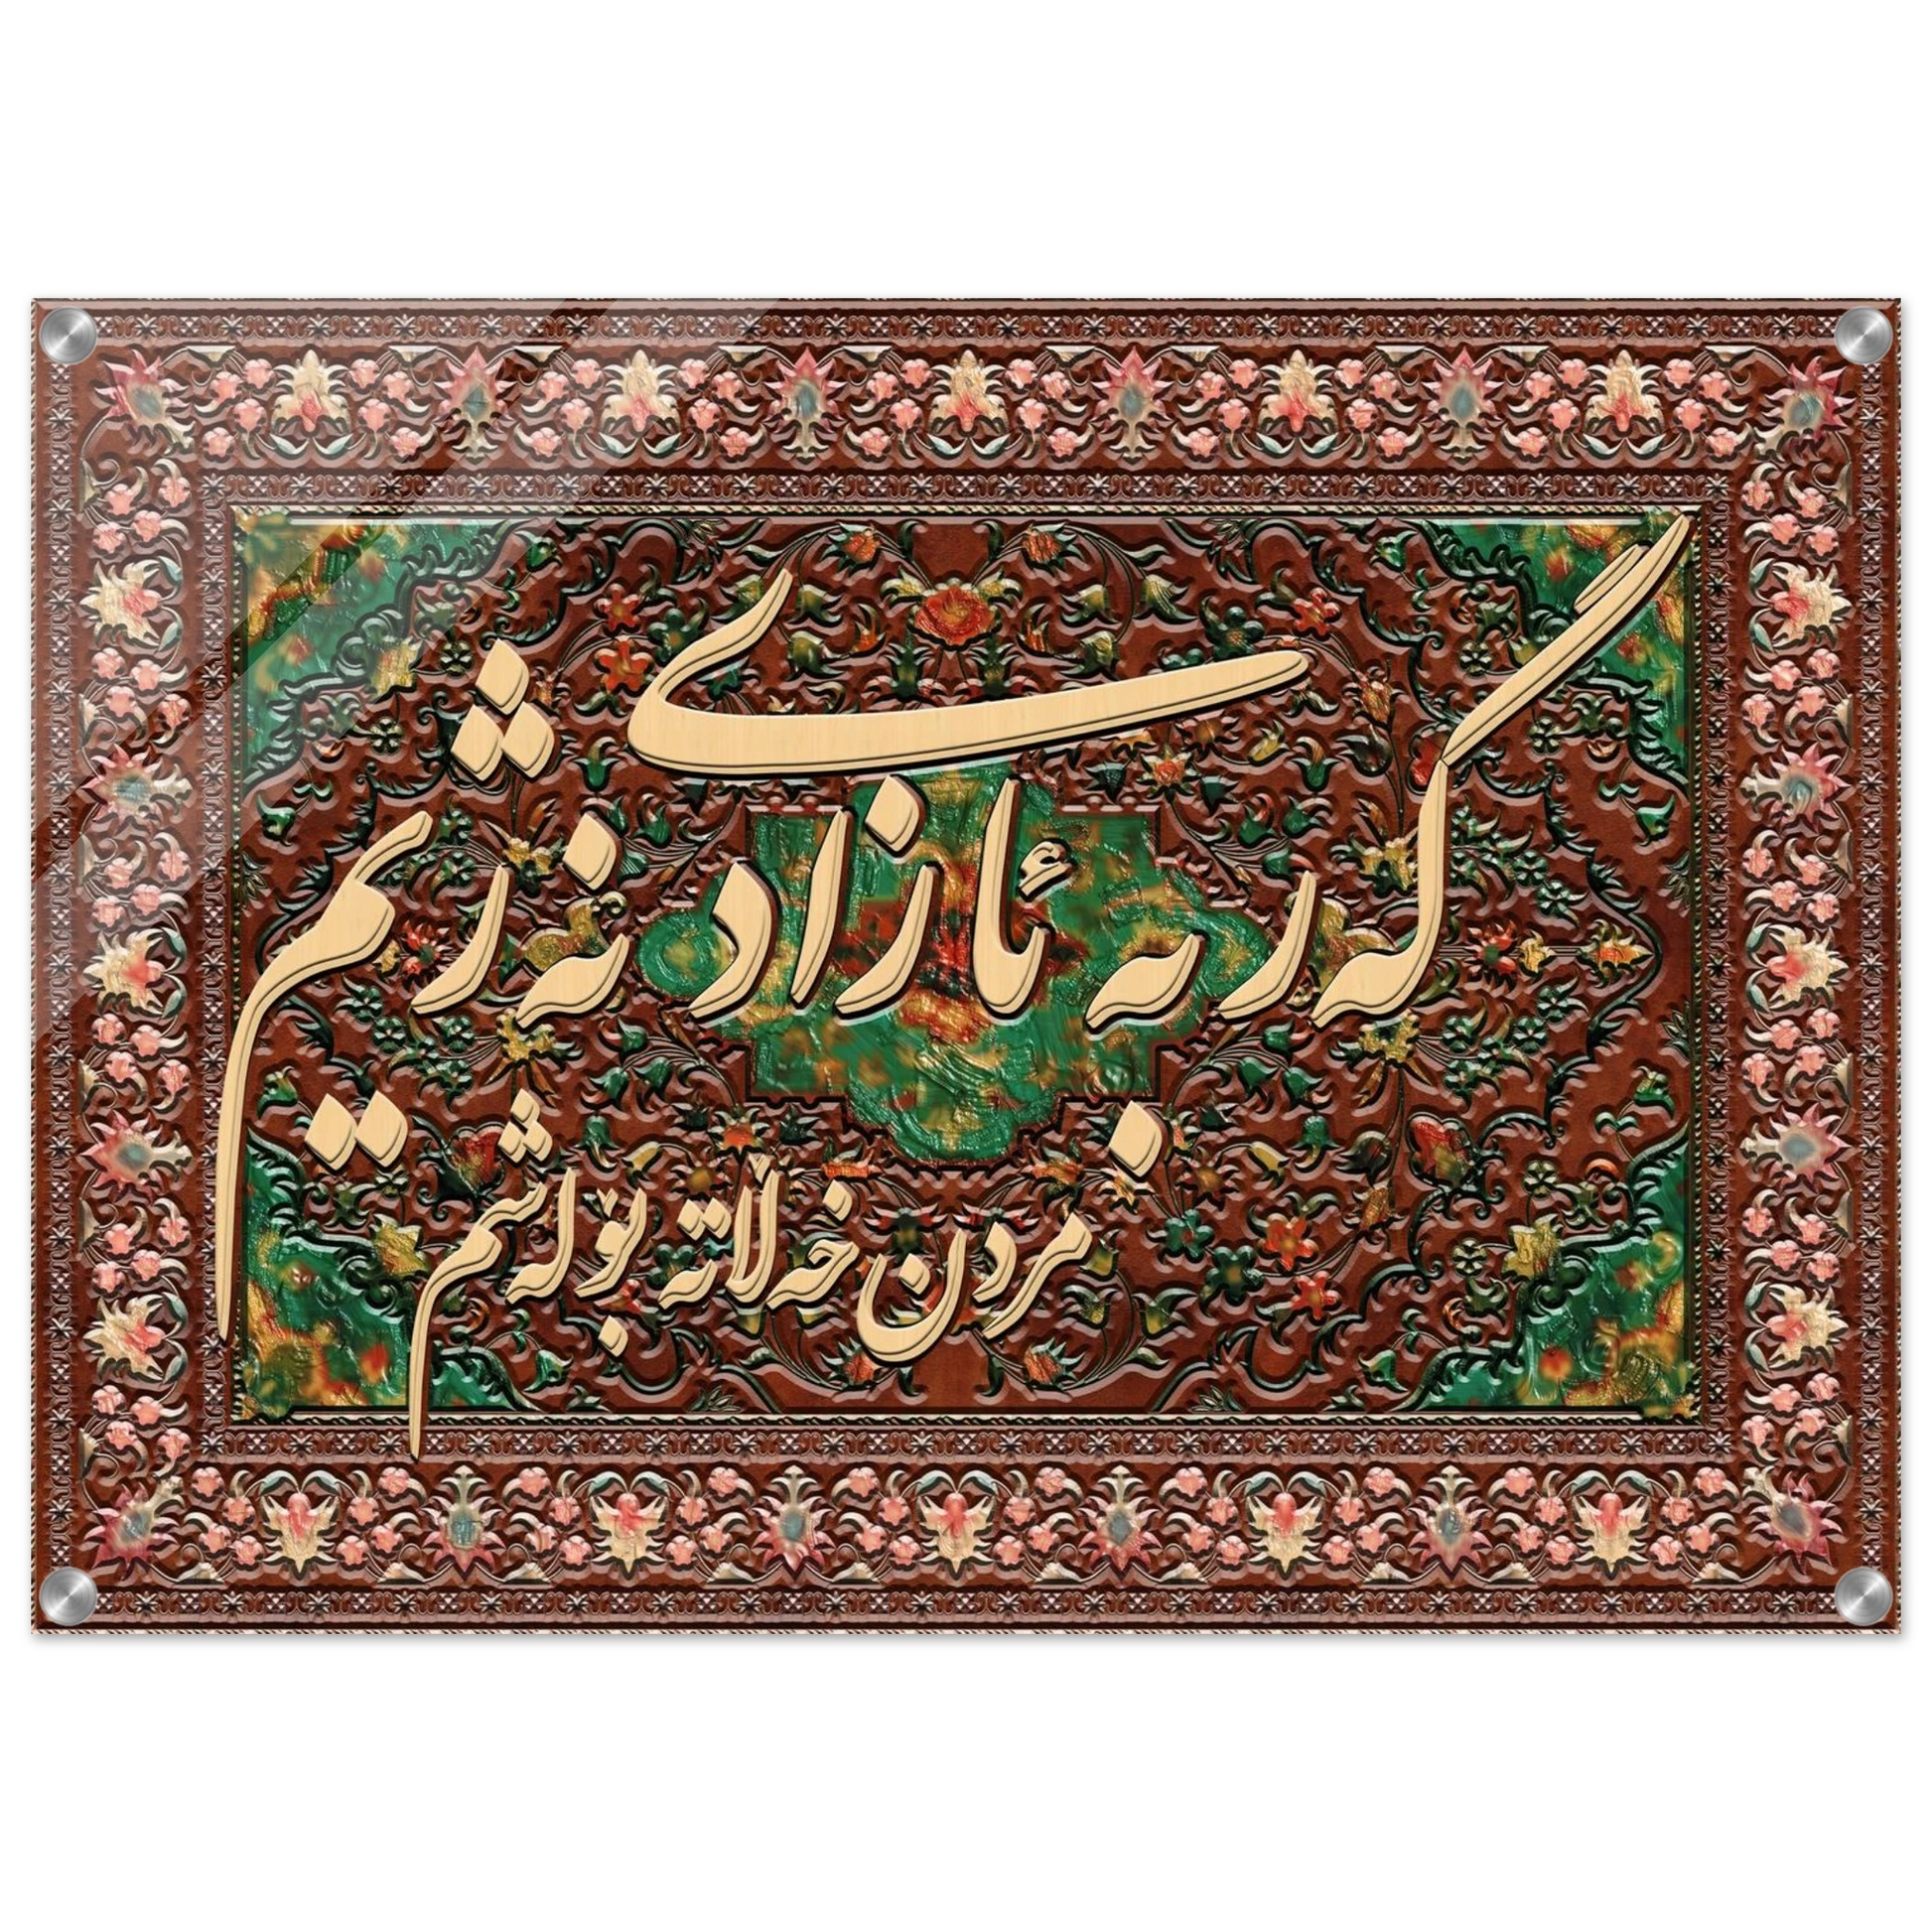 گەر بە ئازادی نەژیم
مردن خەڵاتە بۆ لەشم